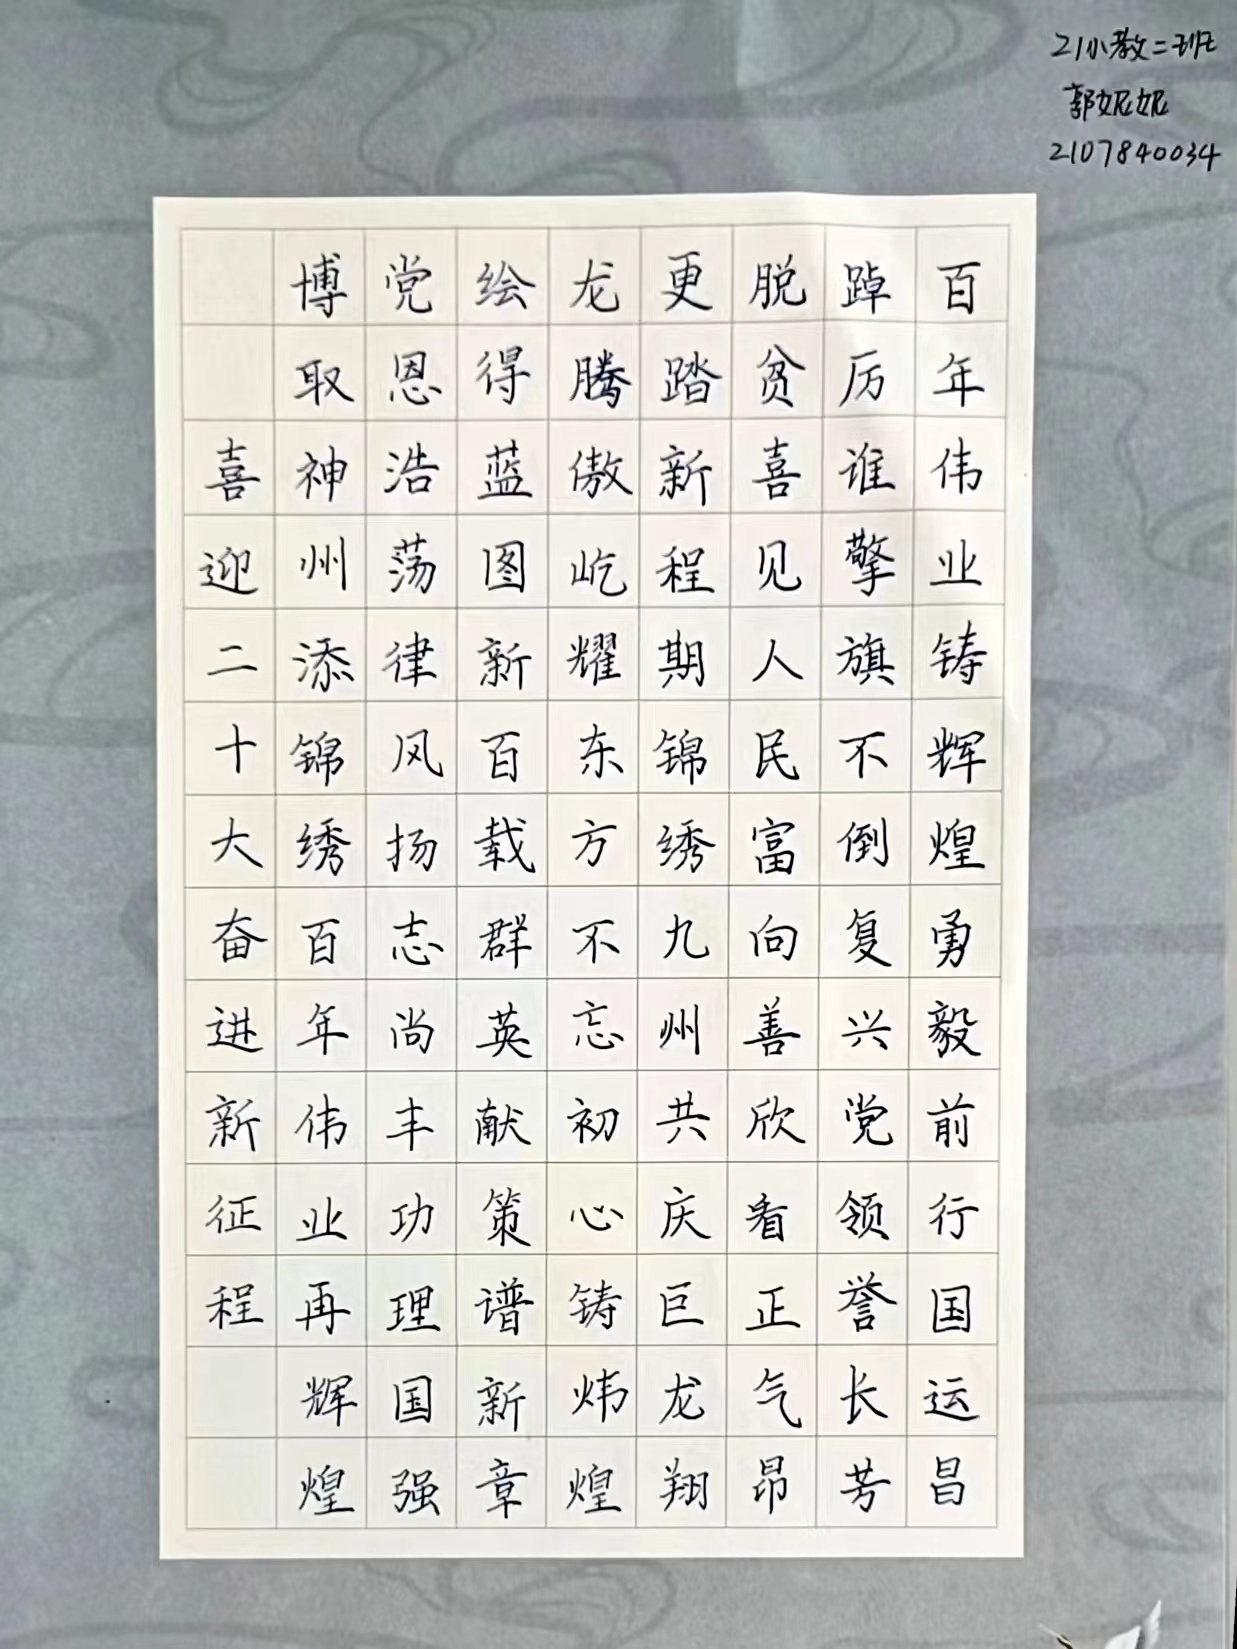 21小教二班
郭妮妮
2107840034
百年伟业铸辉煌勇毅前行国运昌
踔厉谁擎旗不倒复兴党领誉长芳
脱贫喜见人民富向善欣看正气昂
更踏新程期锦绣九州共庆巨龙翔
龙腾傲屹耀东方不忘初心铸炜煌
绘得蓝图新百载群英献策谱新章
党恩浩荡律风扬志尚丰功理国强
博取神州添锦绣百年伟业再辉煌
喜迎二十大奋进新征程